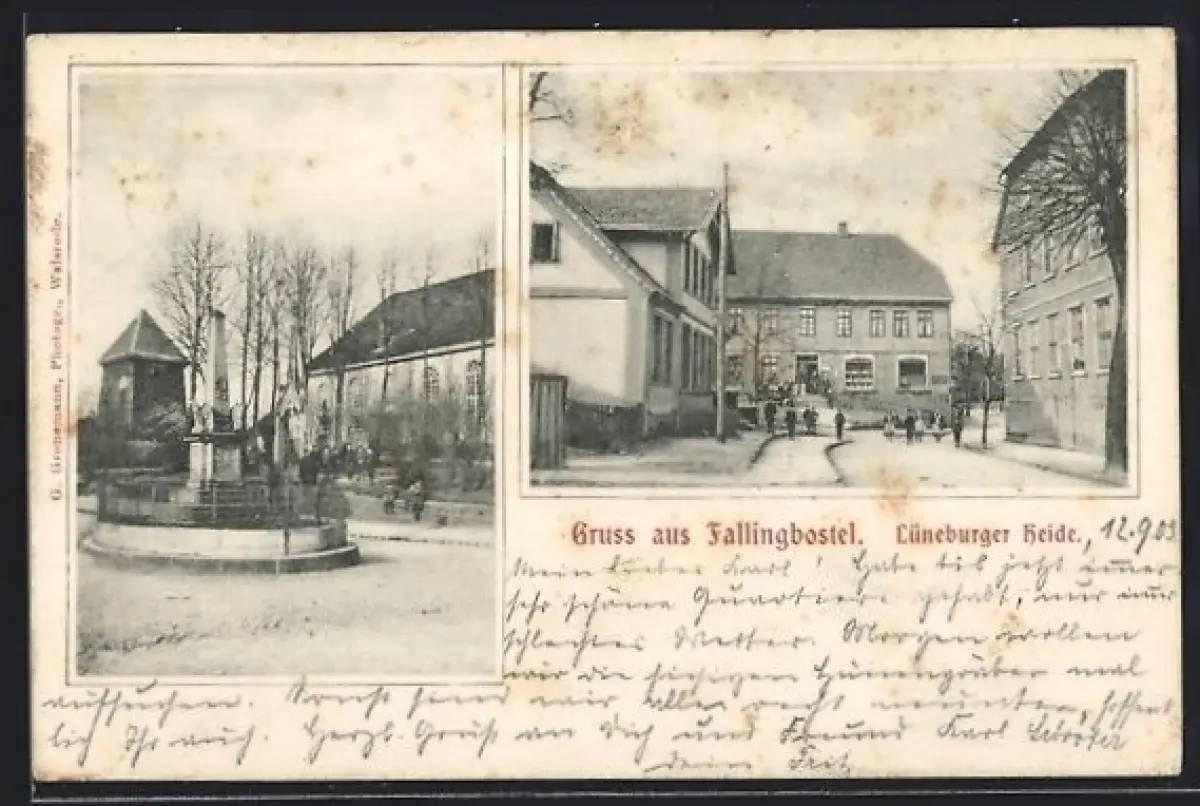 G. Gronemann, Photogr., Walsrode.
Gruss aus Fallingbostel. Lüneburger Heide., 12.9.03
Mein Lieber Karl! Habe bis jetzt immer
sehr schöne Quartiere gehabt, nur immer
schlechtes Wetter. Morgen wollen
wir die hiesigen Hünengräber mal
aufsuchen. Sonst sind wir alle recht munter, hoffent
lich Ihr auch. Herzl. Gruß an Dich und Freund Karl
Fritz